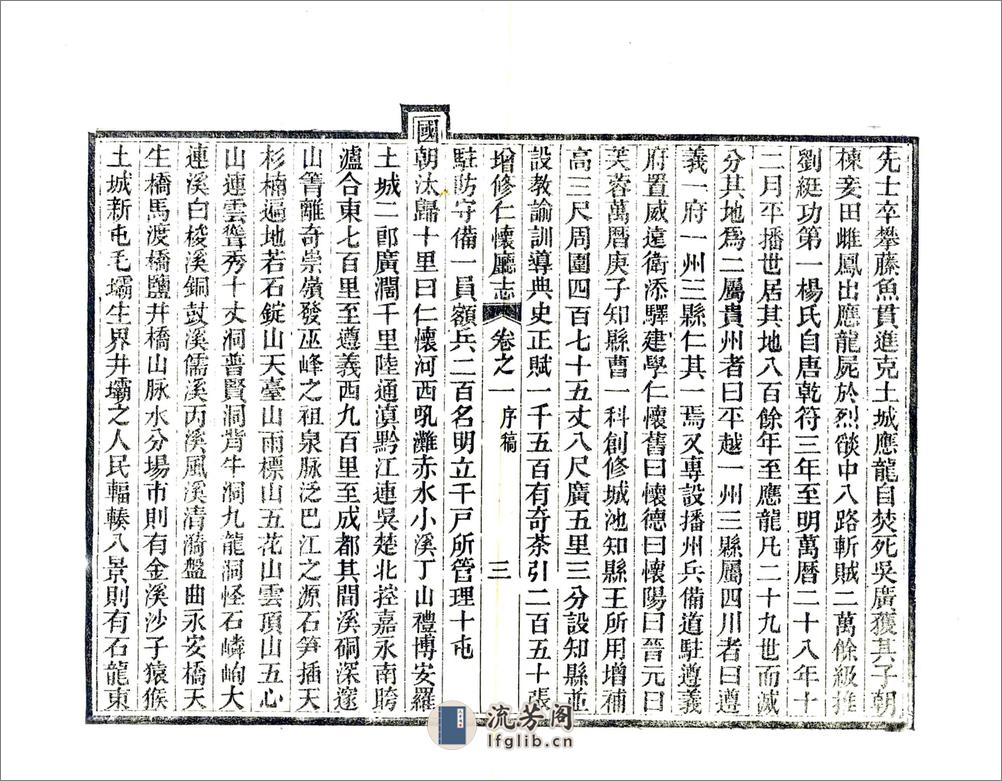 先士卒攀藤魚貫進克土城應龍自焚死吳廣獲其子朝
棟妾田雌鳳出應龍屍於烈燄中八路斬賊二萬餘級推
劉綎功第一楊氏自唐乾符三年至明萬曆二十八年十
二月平播世居其地八百餘年至應龍凡二十九世而滅
分其地爲二屬貴州者曰平越一州三縣屬四川者曰遵
義一府一州三縣仁其一焉又專設播州兵備道駐遵義
府置威遠衛添驛建學仁懷舊曰懷德曰懷陽曰晉元曰
芙蓉萬曆庚子知縣曹一科創修城池知縣王所用增補
高三尺周圍四百七十五丈八尺廣五里三分設知縣並
設教諭訓導典史正賦一千五百有奇茶引二百五十張
增修仁懷廳志 卷之一 序稿 三
駐防守備一員額兵二百名明立千戸所管理十屯
國朝汰歸十里曰仁懷河西吼灘赤水小溪丁山禮博安羅
土城二郎廣濶千里陸通滇黔江連吳楚北控嘉永南跨
瀘合東七百里至遵義西九百里至成都其間溪硐深邃
山箐離奇崇嶺發巫峰之祖泉脉泛巴江之源石笋插天
杉楠遍地若石錠山天臺山雨標山五花山雲頂山五心
山連雲聳秀十丈洞普賢洞背牛洞九龍洞怪石嶙峋大
連溪白梭溪銅鼓溪儒溪丙溪風溪清漪盤曲永安橋天
生橋馬渡橋鹽井橋山脉水分場市則有金溪沙子猿猴
土城新屯毛壩生界井壩之人民輻輳八景則有石龍東
流芳阁
lfglib.cn